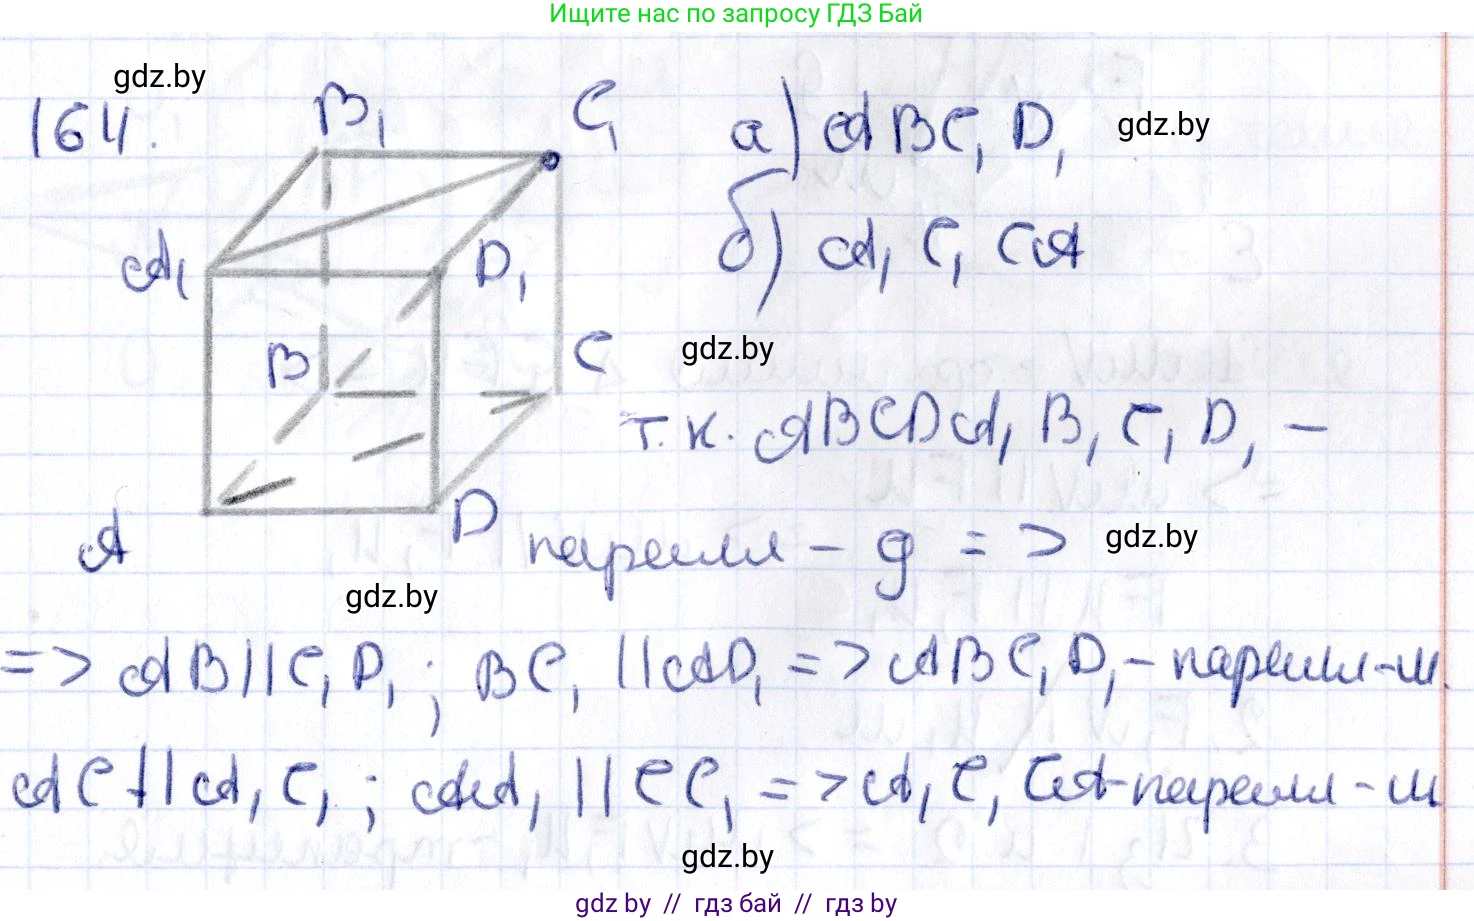 Ищите нас по запросу ГДЗ Бай
gdz.by
164.
B₁ C₁
а) ABC₁D₁ gdz.by
A₁ D₁
б) A₁C₁CA
B C gdz.by
т.к. ABCDA₁B₁C₁D₁ –
A D
паралл – д => gdz.by
gdz.by
=> AB || C₁D₁; BC₁ || AD₁ => ABC₁D₁ – паралл-м.
AC || A₁C₁; AA₁ || CC₁ => A₁C₁CA – паралл-м
gdz.by
gdz by // гдз бай // гдз by